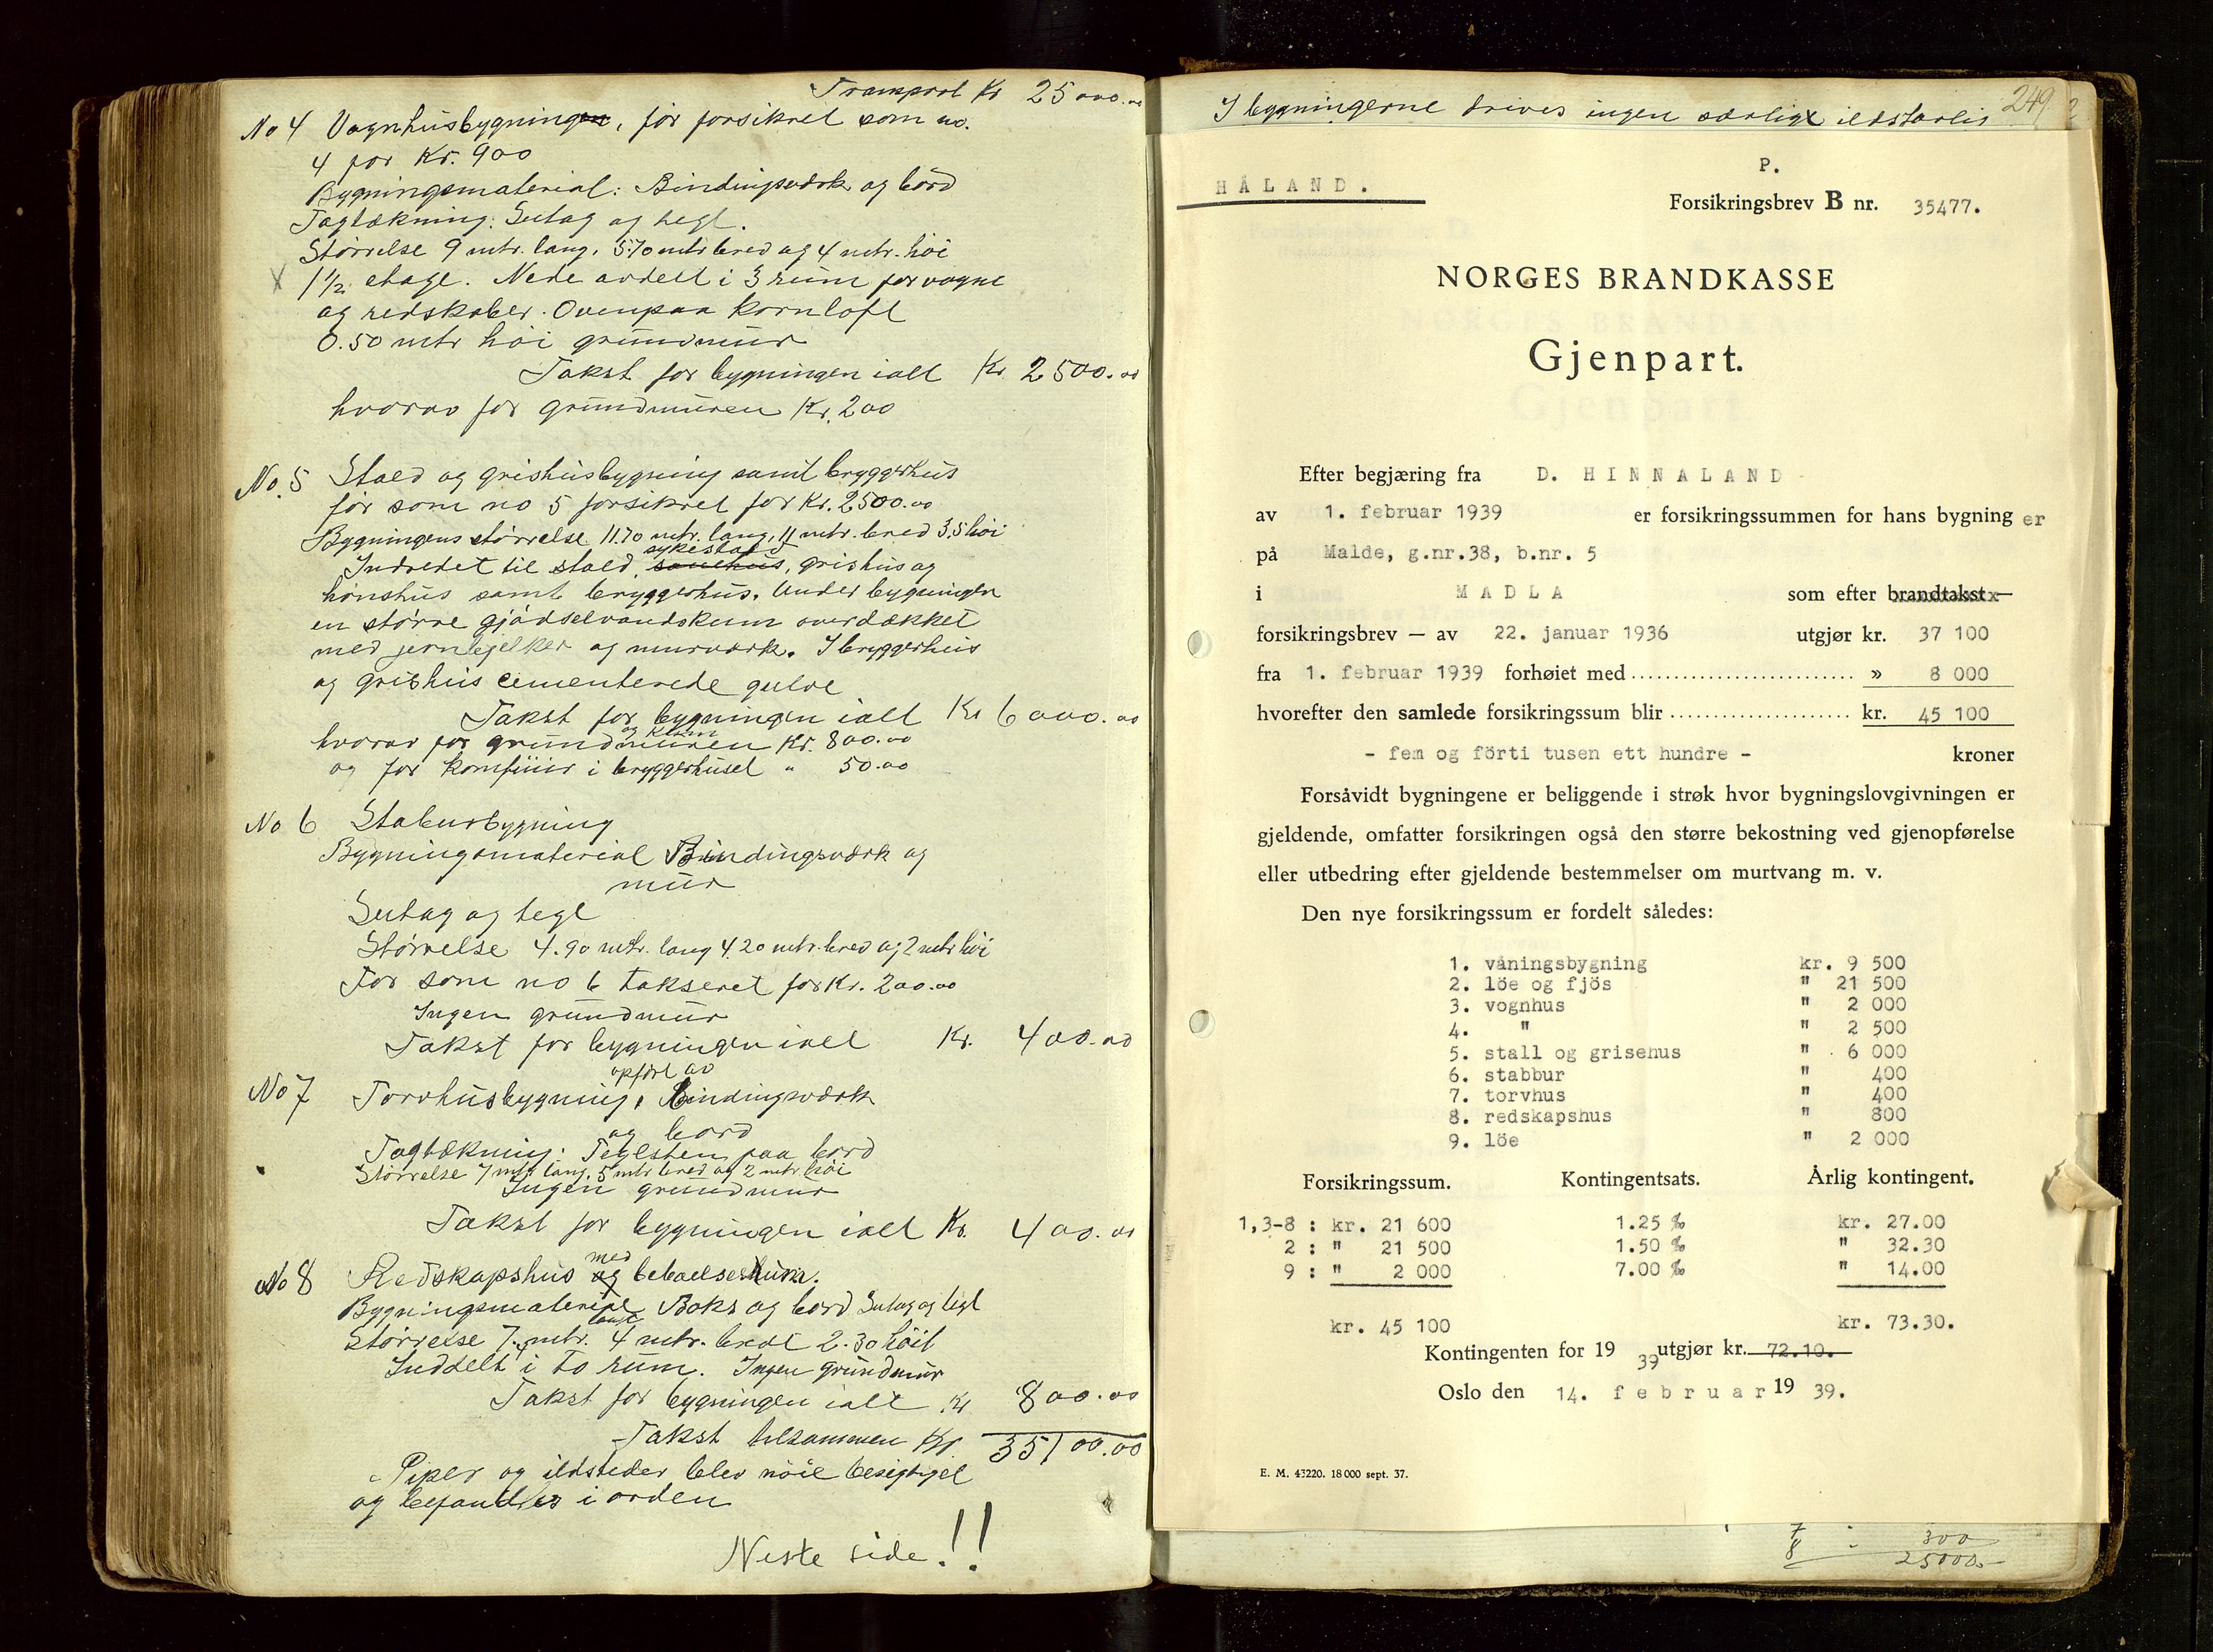 Transport Kr 25000.00
No 4 Vognhusbygningen, før forsikret som no.
4 for Kr. 900
Bygningsmaterial: Bindingsverk og bord
Tagtækning: Sutag og tegl.
Størrelse 9 mtr. lang, 5.70 mtr bred og 4 mtr. høi
X 1 1/2 etage. Nede avdelt i 3 rum for vogne
og redskaber. Ovenpaa kornloft
0.50 mtr høi grundmur
Takst for bygningen ialt Kr. 2500.00
hvorav for grundmuren Kr. 200
No. 5 Stald og grishusbygning samt bryggerhus
før som no 5 forsikret for Kr. 2500.00
Bygningens størrelse 11.70 mtr. lang, 11 mtr. bred 3.5 høi
sykestald
Indredet til stald, sauehus, grishus og
hønshus samt bryggerhus. Under bygningen
en større gjødselvandskum overdækket
med jernbjelker og murverk. I bryggerhus
og grishus cementerede gulve
Takst for bygningen ialt Kr 6000.00
og kum
hvorav for grundmuren Kr. 800.00
og for komfuur i bryggerhuset " 50.00
No 6 Stabursbygning
Bygningsmaterial Bindingsverk og
mur
Sutag og tegl
Størrelse 4.90 mtr. lang 4.20 mtr. bred og 2 mtr høi
Før som no 6 takseret for Kr. 200.00
Ingen grundmur
Takst for bygningen ialt Kr. 400.00
opført av
No 7 Torvhusbygning, Bindingsverk
og bord
Tagtækning: Teglsten paa bord
Størrelse 7 mtr lang, 5 mtr bred og 2 mtr høi
Ingen grundmur
Takst for bygningen ialt Kr. 400.00
med
No 8 Redskapshus og beboelsesrum.
Bygningsmaterial Boks og bord Sutag og tegl
langt
Størrelse 7. mtr. 4 mtr. bredt 2.30 høit
Inddelt i to rum. Ingen grundmur
Takst for bygningen ialt Kr 800.00
Takst tilsammen Kr. 35100.00
Piper og ildsteder blev nøie besigtiget
og befandtes i orden
Neste side!!
I bygningerne drives ingen særlig ildsfarlig
249
P.
HÅLAND.
Forsikringsbrev B nr. 35477.
NORGES BRANDKASSE
Gjenpart.
Efter begjæring fra D. HINNALAND
av 1. februar 1939 er forsikringssummen for hans bygning er
på Malde, g.nr.38, b.nr. 5
i MADLA som efter brandtakst —
forsikringsbrev — av 22. januar 1936 utgjør kr. 37 100
fra 1. februar 1939 forhøiet med .......................... » 8 000
hvorefter den samlede forsikringssum blir ..................... kr. 45 100
- fem og förti tusen ett hundre - kroner
Forsåvidt bygningene er beliggende i strøk hvor bygningslovgivningen er
gjeldende, omfatter forsikringen også den større bekostning ved gjenopførelse
eller utbedring efter gjeldende bestemmelser om murtvang m. v.
Den nye forsikringssum er fordelt således:
1. våningsbygning kr. 9 500
2. löe og fjös " 21 500
3. vognhus " 2 000
4. " " 2 500
5. stall og grisehus " 6 000
6. stabbur " 400
7. torvhus " 400
8. redskapshus " 800
9. löe " 2 000
Forsikringssum. Kontingentsats. Årlig kontingent.
1,3-8 : kr. 21 600 1.25 ‰ kr. 27.00
2 : " 21 500 1.50 ‰ " 32.30
9 : " 2 000 7.00 ‰ " 14.00
kr. 45 100 kr. 73.30.
Kontingenten for 19 39 utgjør kr. 72.10.
Oslo den 14. februar 19 39.
E. M. 43220. 18 000 sept. 37.
7 - 300
8 - 25000.-